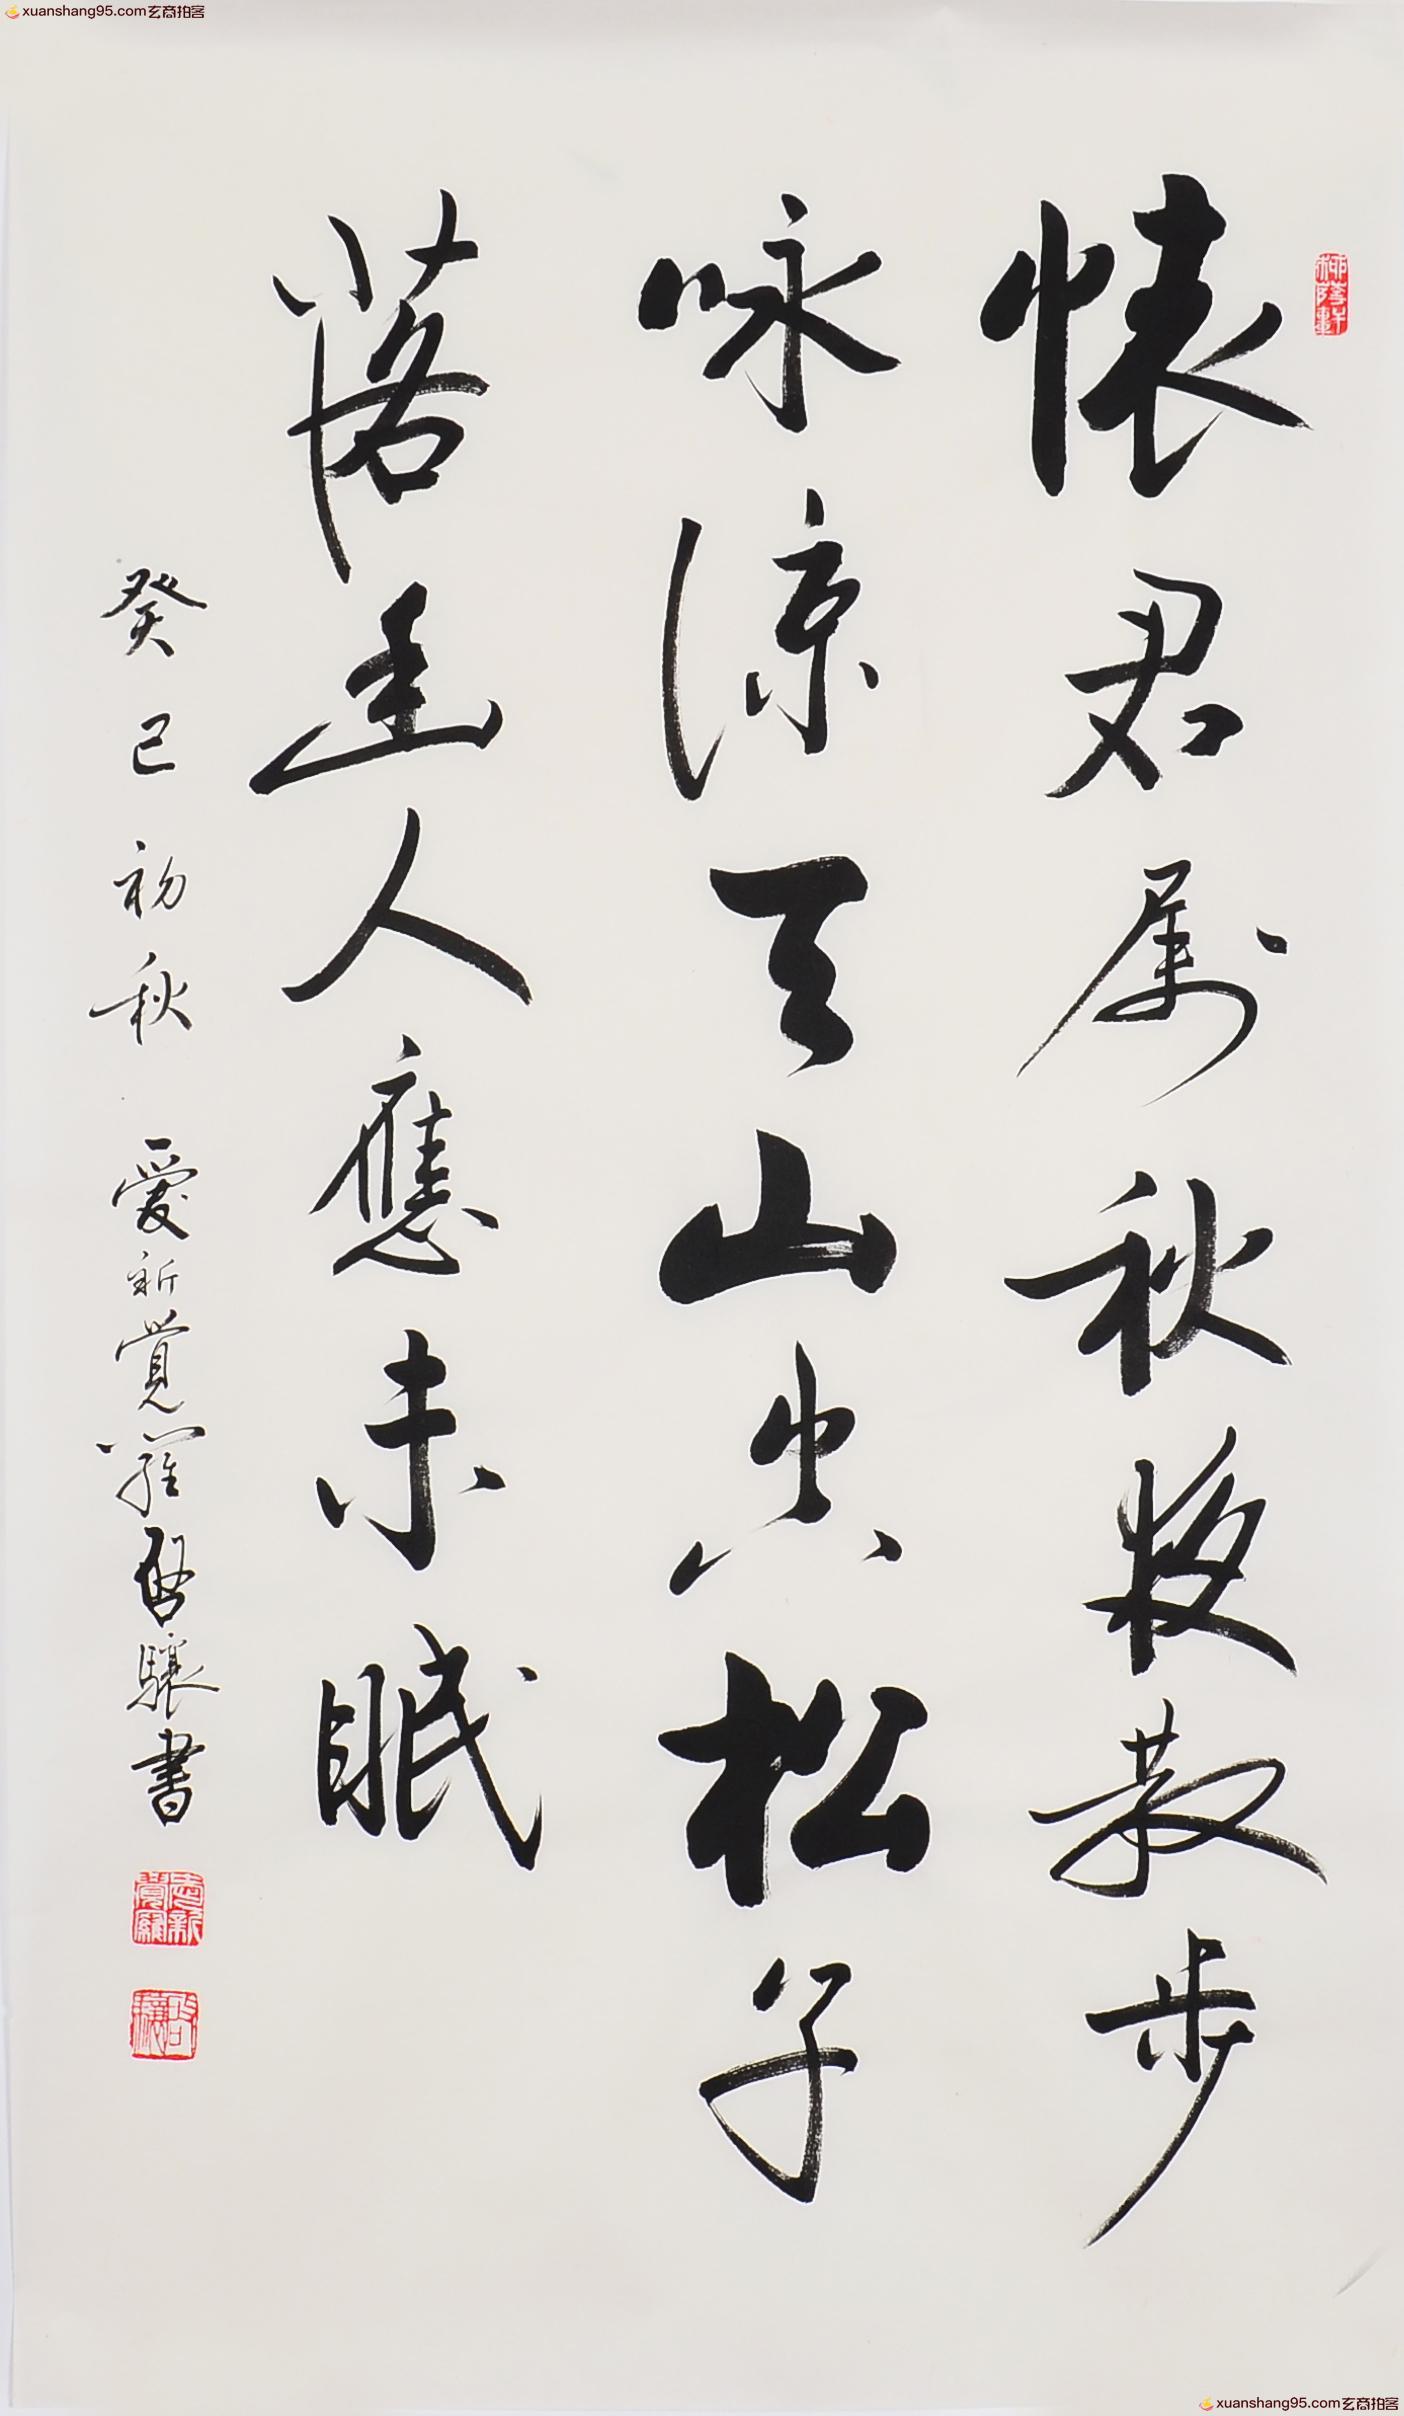 xuanshang95.com玄商拍客
柳荫軒
怀君属秋夜散步
咏凉天山空松子
落幽人應未眠
癸巳初秋 愛新覚羅啓驤書
愛新覺羅
啓驤
xuanshang95.com玄商拍客